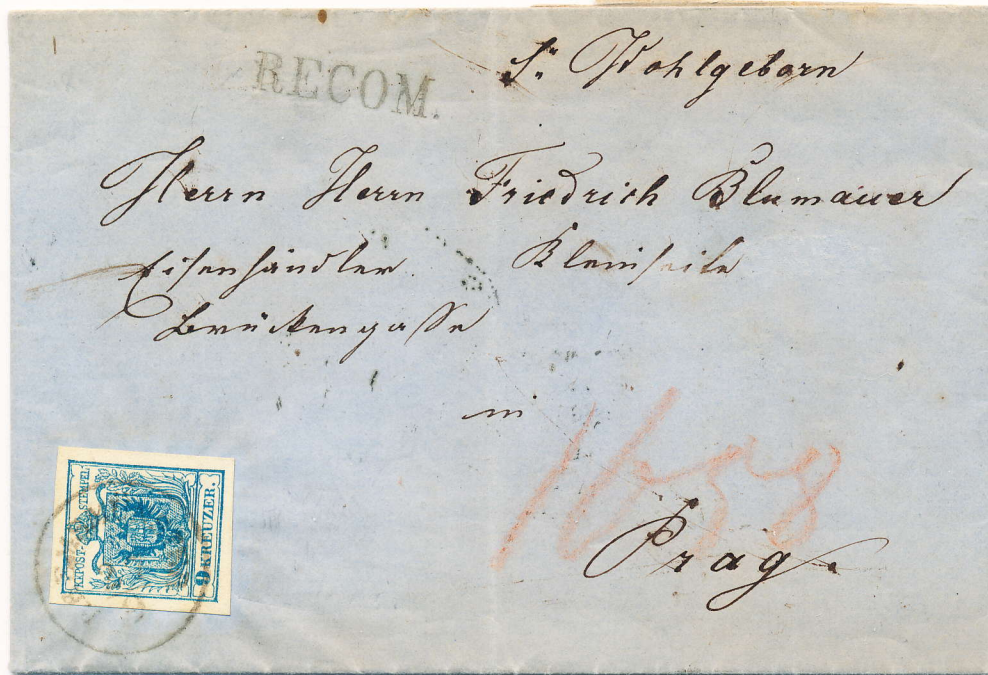 RECOM.
Sr Wohlgeborn
Herrn Herrn Friedrich Blumauer
Eisenhändler Kleinseite
Brückengasse
in
Prag.
K.K.POST-STEMPEL
9 KREUZER.